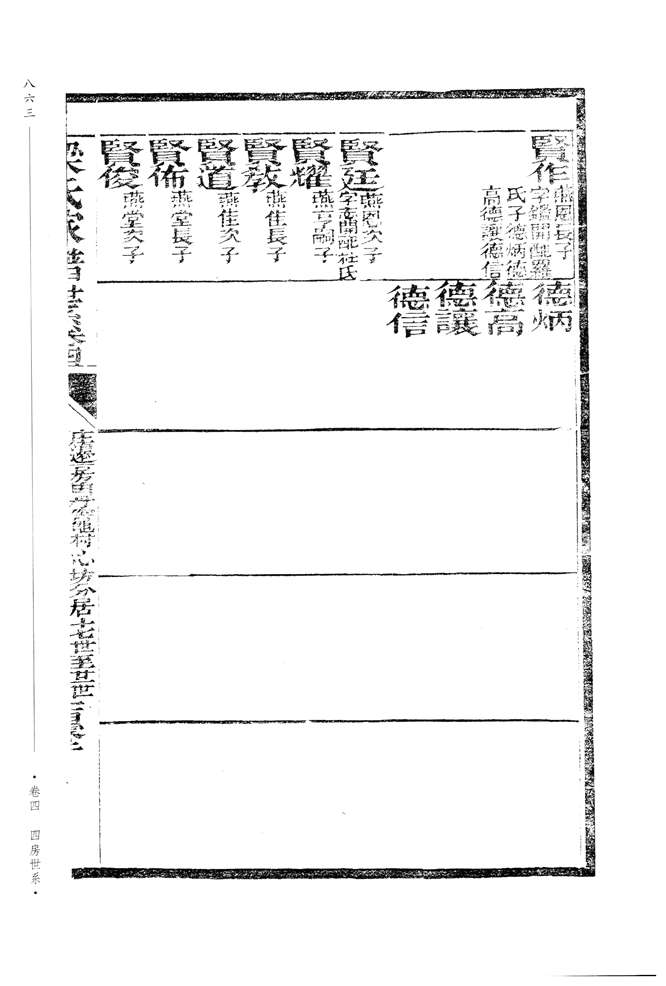 賢作
燕恩長子
字鑑開配羅
氏子德炳德
高德讓德信
德炳
德高
德讓
德信
賢廷
燕恩次子
字玄開配杜氏
賢耀
燕亨嗣子
賢教
燕佳長子
賢道
燕佳次子
賢佈
燕堂長子
賢俊
燕堂次子
梁氏家譜世系卷四
房
村心坊分居十七世至廿世
八六三
·卷四 四房世系·